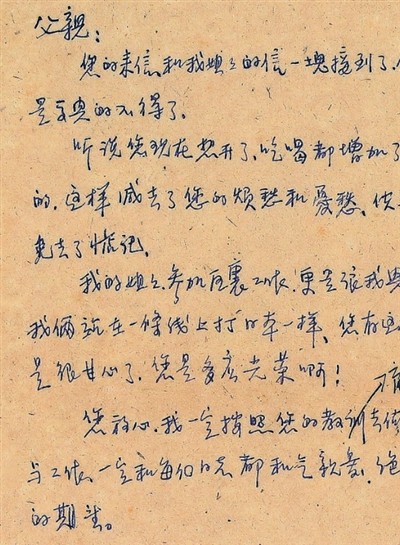 父親：
您的来信和我姐之的信一塊接到了、
是高兴的不得了。
听说您现在想开了、吃喝都增加了
的、这样减去了您的烦愁和憂愁、使
免去了惦记。
我的姐之参加被裹工作、更是强我兴
我俩站在一條线上打日本一样、您在
是很甘心了、您是多么光荣啊！
您放心、我一定按照您的教训去
与工作、一定和每個同志都和气亲爱、绝
的期望。